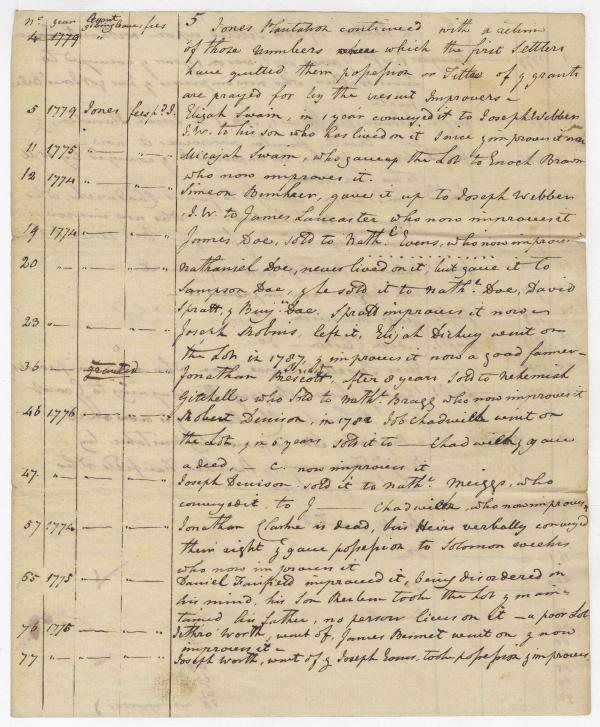 no. year fees 5 Jones Plantation continued with a return
4 1779 " of those numbers which the first Settlers
have quitted them possession or Title of y grants
are prayed for by the present Improvers –
5 1779 Jones fees pd. J. Elijah Swain, in 1 year conveyed it to Joseph Webber
J.W. to his son who has lived on it since & improves it now
11 1775 " — " — " Micajah Swain, who gave up the Lot to Enoch Brown
who now improves it.
12 1774 " — " — " Simeon gave it up to Joseph Webber
J.W. to James Lancaster who now improves it
19 1774 — " — " James Doe, sold to Nathl. Evens, who now improves
20 " — — " — " Nathaniel Doe, never lived on it, but gave it to
Sampson Doe, & he sold it to Nathl. Doe, David
Spratt, & Benjn. Doe. Spratt improves it now –
23 " — — " — " Joseph left it, Elijah Dickey went on
the Lot in 1787, & improves it now a good farmer –
36 " — granted " — " Jonathan Prescott, after 8 years, sold to Nehemiah
Getchell – who sold to Nathl. Bragg who now improves it
46 1776 — " — " Robert Denison, in 1782 Job Chadwick went on
the Lot, & in 6 years sold it to — Chadwick & gave
a deed, – C. now improves it
47 " — — " — " Joseph Denison sold it to Nathl. Meiggs, who
conveyed it to J — Chadwick, who now improves
57 1774 — " — " Jonathan Clarke is dead, his Heirs verbally convey'd
their right & gave possession to Solomon weeks
who now improves it
65 1775 — " — " Daniel Fairfield improved it, being disordered in
his mind, his Son Reuben took the Lot & main-
tained his father, no person lives on it – a poor Lot
76 1775 — " — " Jethro Worth, went of, James went on & now
improves it –
77 " — — " — " Joseph Worth, went of & Joseph took possession & improves